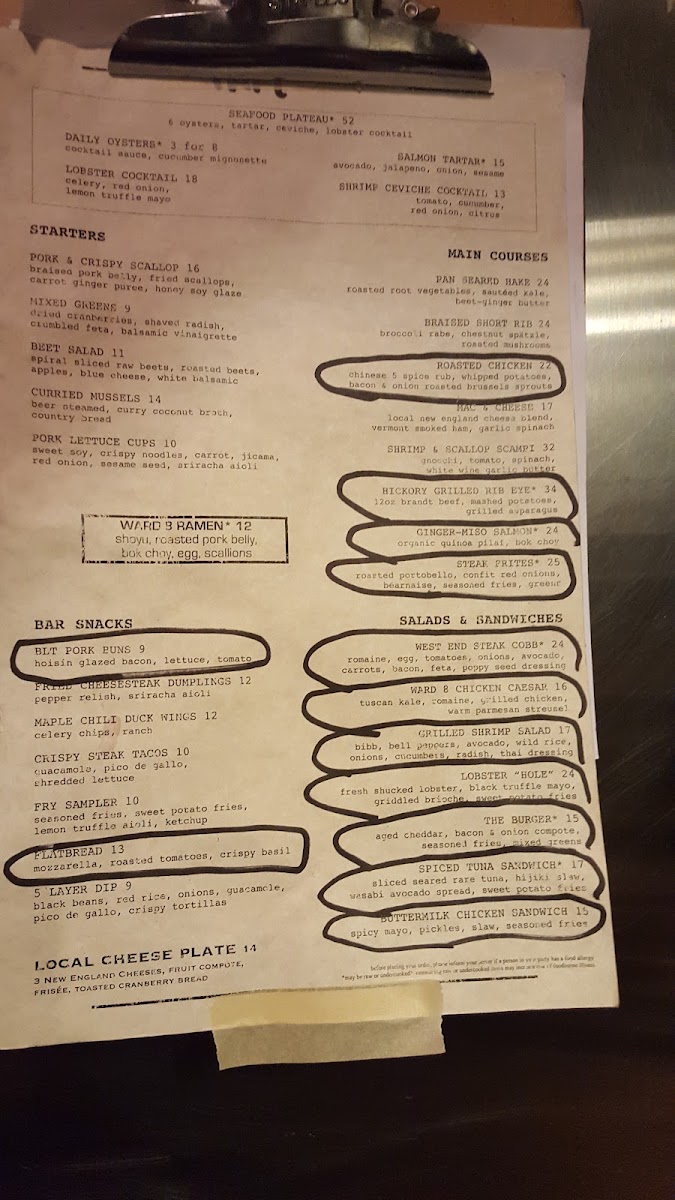 SEAFOOD PLATEAU* 52
6 oysters, tartar, ceviche, lobster cocktail
DAILY OYSTERS* 3 for 8
cocktail sauce, cucumber mignonette
LOBSTER COCKTAIL 18
celery, red onion,
lemon truffle mayo
SALMON TARTAR* 15
avocado, jalapeno, onion, sesame
SHRIMP CEVICHE COCKTAIL 13
tomato, cucumber,
red onion, citrus
STARTERS
PORK & CRISPY SCALLOP 16
braised pork belly, fried scallops,
carrot ginger puree, honey soy glaze
MIXED GREENS 9
dried cranberries, shaved radish,
crumbled feta, balsamic vinaigrette
BEET SALAD 11
spiral sliced raw beets, roasted beets,
apples, blue cheese, white balsamic
CURRIED MUSSELS 14
beer steamed, curry coconut broth,
country bread
PORK LETTUCE CUPS 10
sweet soy, crispy noodles, carrot, jicama,
red onion, sesame seed, sriracha aioli
WARD 8 RAMEN* 12
shoyu, roasted pork belly,
bok choy, egg, scallions
MAIN COURSES
PAN SEARED HAKE 24
roasted root vegetables, sautéed kale,
beet-ginger butter
BRAISED SHORT RIB 24
broccoli rabe, chestnut spätzle,
roasted mushrooms
ROASTED CHICKEN 22
chinese 5 spice rub, whipped potatoes,
bacon & onion roasted brussels sprouts
MAC & CHEESE 17
local new england cheese blend,
vermont smoked ham, garlic spinach
SHRIMP & SCALLOP SCAMPI 32
gnocchi, tomato, spinach,
white wine garlic butter
HICKORY GRILLED RIB EYE* 34
12oz brandt beef, mashed potatoes,
grilled asparagus
GINGER-MISO SALMON* 24
organic quinoa pilaf, bok choy
STEAK FRITES* 25
roasted portobello, confit red onions,
béarnaise, seasoned fries, greens
BAR SNACKS
BLT PORK BUNS 9
hoisin glazed bacon, lettuce, tomato
FRIED CHEESESTEAK DUMPLINGS 12
pepper relish, sriracha aioli
MAPLE CHILI DUCK WINGS 12
celery chips, ranch
CRISPY STEAK TACOS 10
guacamole, pico de gallo,
shredded lettuce
FRY SAMPLER 10
seasoned fries, sweet potato fries,
lemon truffle aioli, ketchup
FLATBREAD 13
mozzarella, roasted tomatoes, crispy basil
5 LAYER DIP 9
black beans, red rice, onions, guacamole,
pico de gallo, crispy tortillas
LOCAL CHEESE PLATE 14
3 NEW ENGLAND CHEESES, FRUIT COMPOTE,
FRISÉE, TOASTED CRANBERRY BREAD
SALADS & SANDWICHES
WEST END STEAK COBB* 24
romaine, egg, tomatoes, onions, avocado,
carrots, bacon, feta, poppy seed dressing
WARD 8 CHICKEN CAESAR 16
tuscan kale, romaine, grilled chicken,
warm parmesan streusel
GRILLED SHRIMP SALAD 17
bibb, bell peppers, avocado, wild rice,
onions, cucumbers, radish, thai dressing
LOBSTER "HOLE" 24
fresh shucked lobster, black truffle mayo,
griddled brioche, sweet potato fries
THE BURGER* 15
aged cheddar, bacon & onion compote,
seasoned fries, mixed greens
SPICED TUNA SANDWICH* 17
sliced seared rare tuna, hijiki slaw,
wasabi avocado spread, sweet potato fries
BUTTERMILK CHICKEN SANDWICH 15
spicy mayo, pickles, slaw, seasoned fries
before placing your order, please inform your server if a person in your party has a food allergy
*may be raw or undercooked*